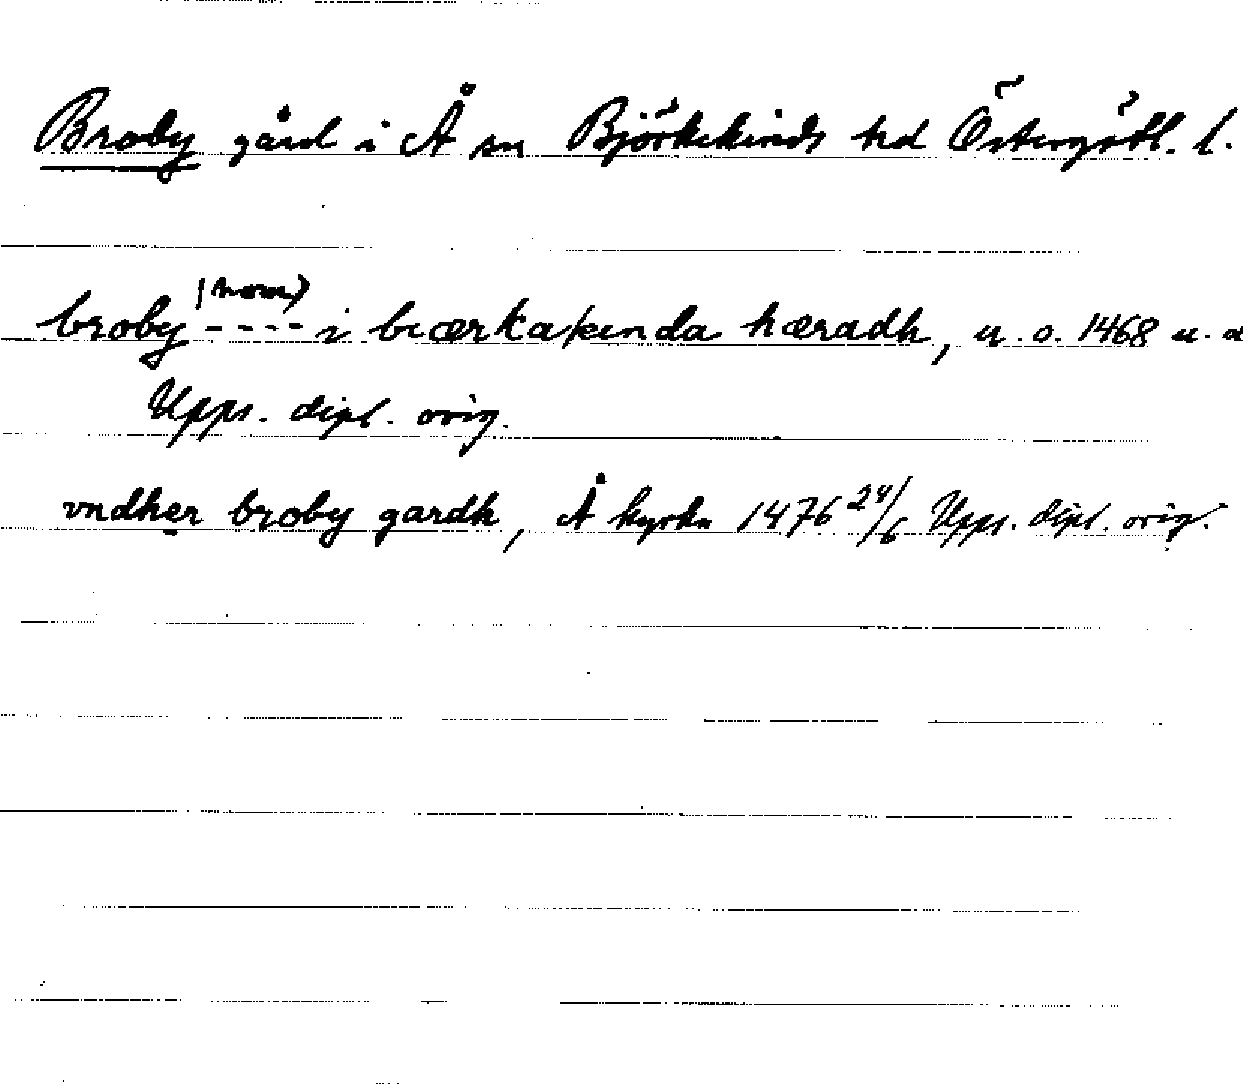 Broby gård i Å sn Björkekinds hd Östergötl. l.
broby (nom) - - - - i biærkakinda hæradh, u. o. 1468 u. d
Upps. dipl. orig.
vndher broby gardh, Å kyrka 1476 24/6 Upps. dipl. orig.